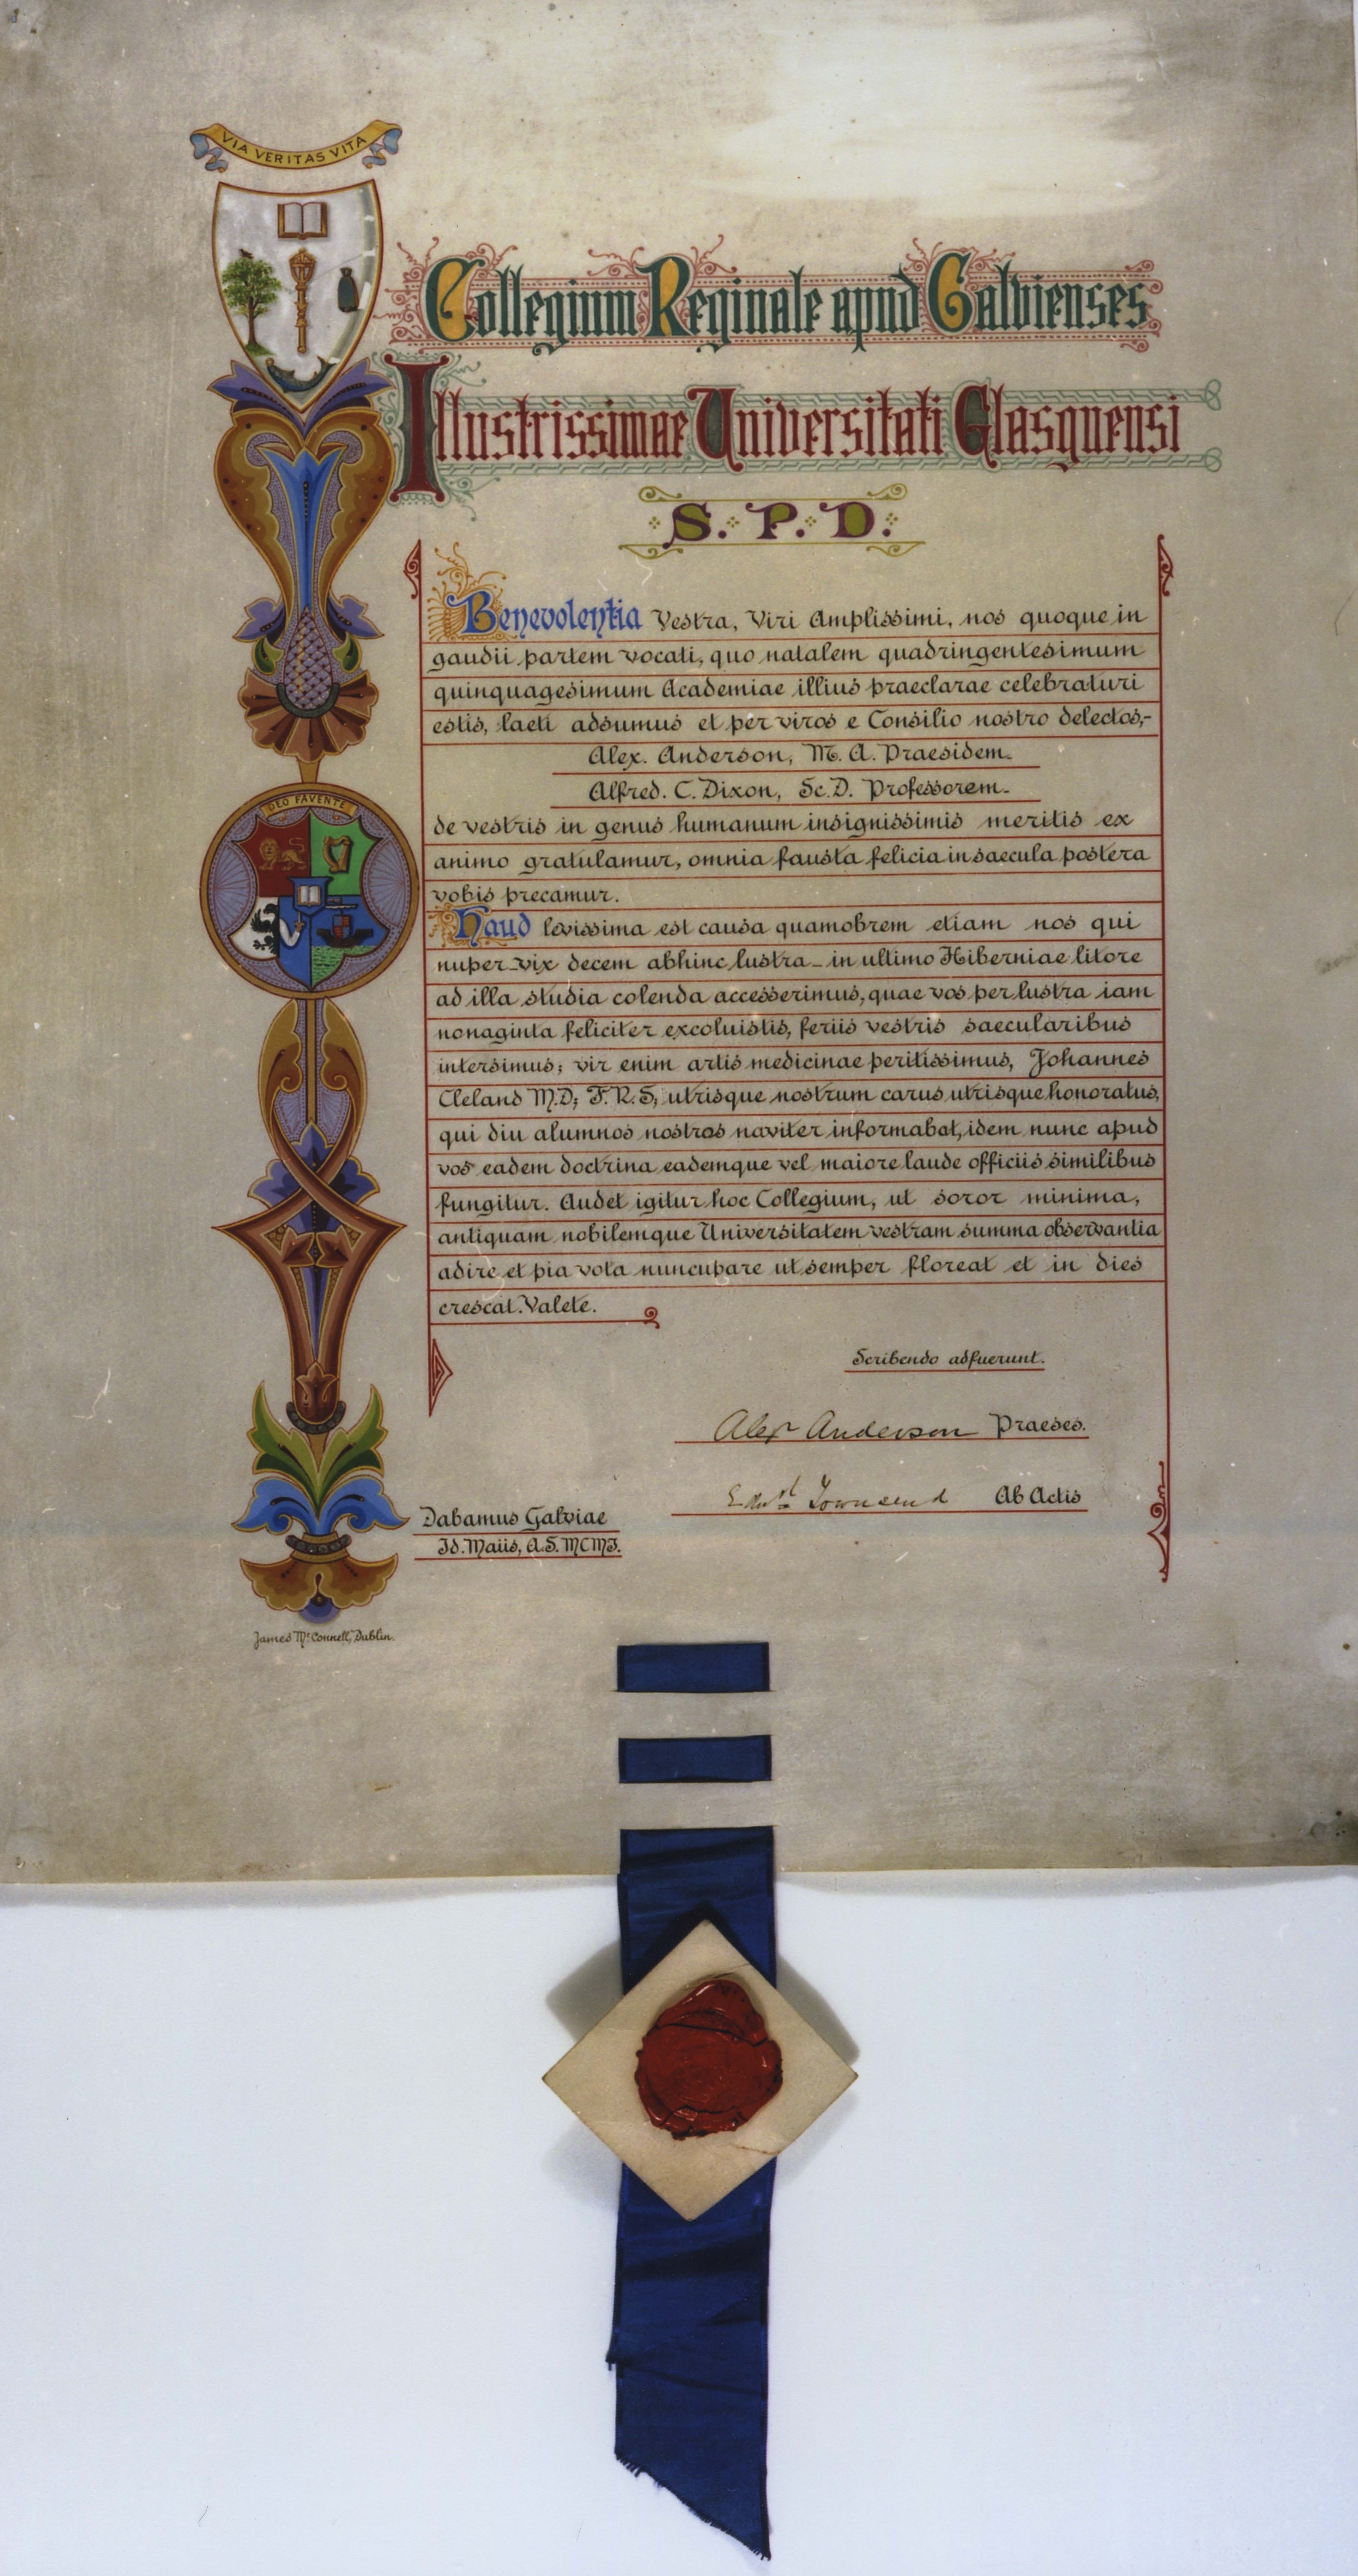 VIA VERITAS VITA
Collegium Reginale apud Galvienses
Illustrissimae Universitati Glasguensi
S. P. D.
Benevolentia Vestra, Viri Amplissimi, nos quoque in
gaudii partem vocati, quo natalem quadringentesimum
quinquagesimum Academiae illius praeclarae celebraturi
estis, laeti adsumus et per viros e Consilio nostro delectos,-
Alex. Anderson, M. A. Praesidem.
Alfred. C. Dixon, Sc. D. Professorem.
de vestris in genus humanum insignissimis meritis ex
animo gratulamur, omnia fausta felicia in saecula postera
vobis precamur.
DEO FAVENTE
Haud levissima est causa quamobrem etiam nos qui
nuper-vix decem abhinc lustra-in ultimo Hiberniae litore
ad illa studia colenda accesserimus, quae vos per lustra iam
nonaginta feliciter excoluistis, feriis vestris saecularibus
intersimus; vir enim artis medicinae peritissimus, Johannes
Cleland M.D; F. R. S; utrisque nostrum carus utrisque honoratus,
qui diu alumnos nostros naviter informabat, idem nunc apud
vos eadem doctrina eademque vel maiore laude officiis similibus
fungitur. Audet igitur hoc Collegium, ut soror minima,
antiquam nobilemque Universitatem vestram summa observantia
adire et pia vota nuncupare ut semper floreat et in dies
crescat. Valete.
Scribendo adfuerunt.
Alexr Anderson Praeses.
Edwd Townsend Ab Actis
Dabamus Galviae
Id. Maiis, A.S. MCMI.
James McConnell, Dublin.